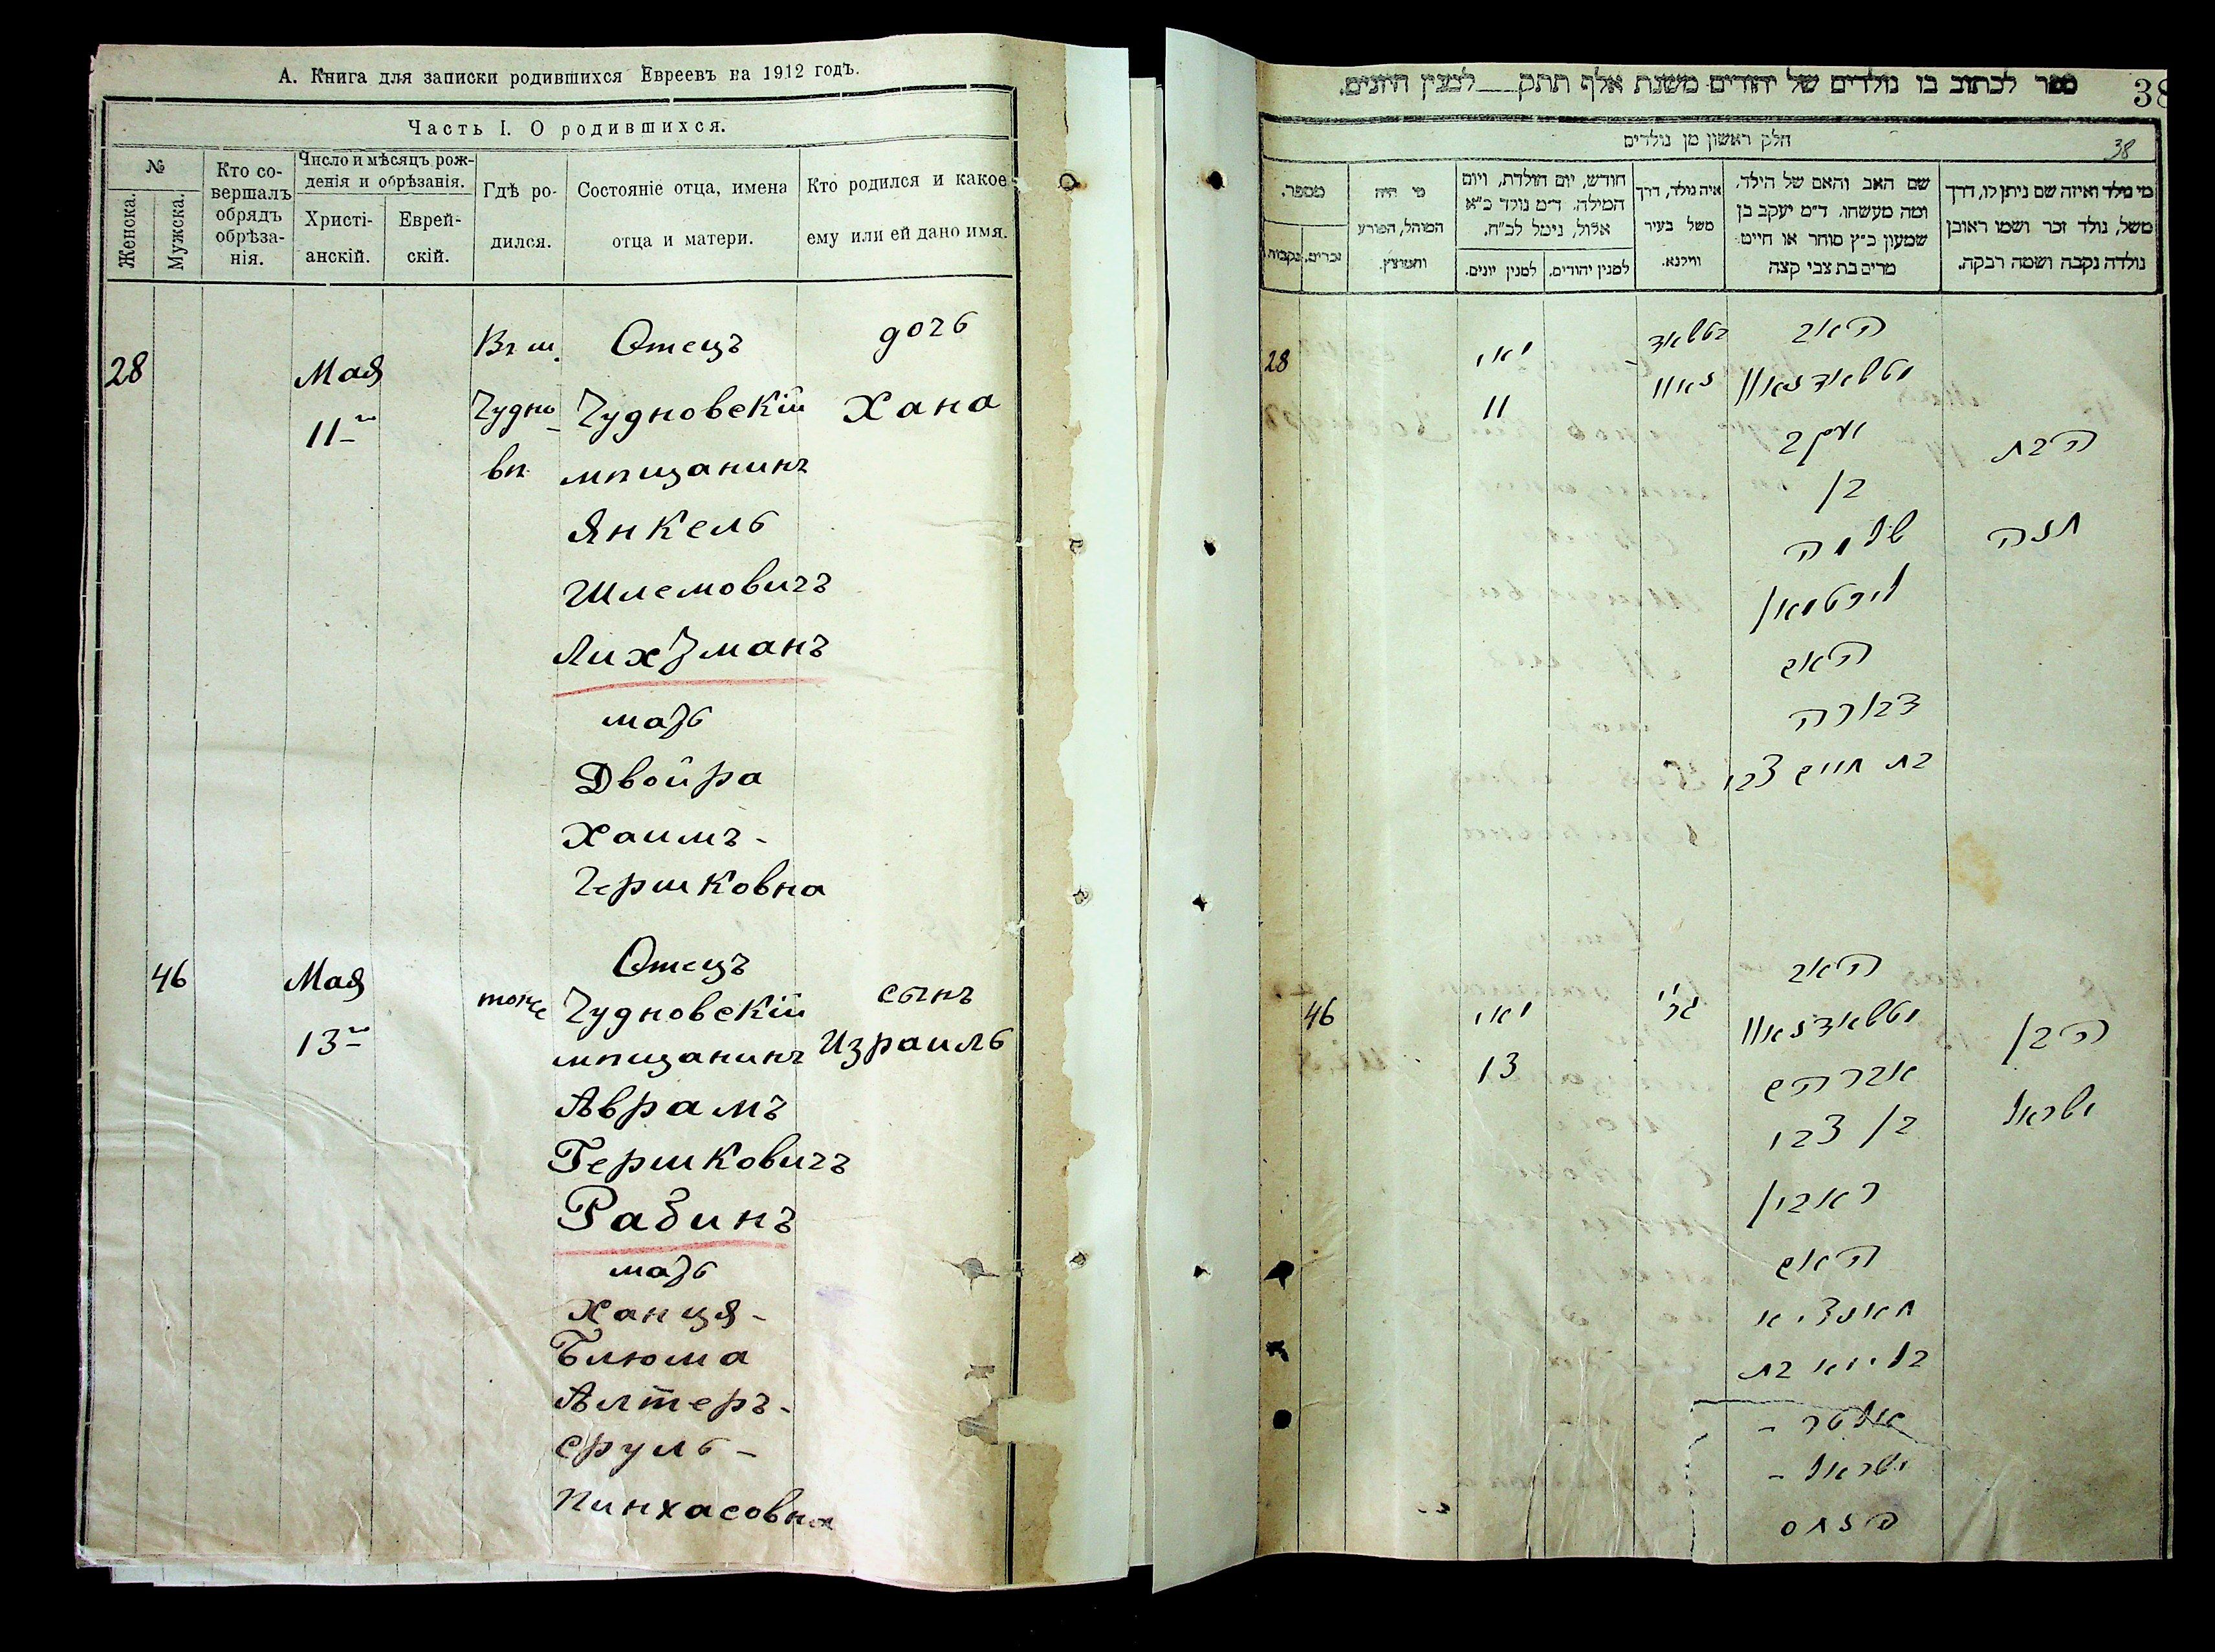 А. Книга для записки родившихся Евреевъ на 1912 годъ.
Часть I. О родившихся.
№
Женска.
Мужска.
Кто со-
вершалъ
обрядъ
обрѣза-
нія.
Число и мѣсяцъ рож-
денія и обрѣзанія.
Христі-
анскій.
Еврей-
скій.
Гдѣ ро-
дился.
Состояніе отца, имена
отца и матери.
Кто родился и какое
ему или ей дано имя.
28
Мая
11го
Въ м.
Чудно
вѣ
Отецъ
Чудновскій
мѣщанинъ
Янкель
Шлемовичъ
Лихтманъ
мать
Двойра
Хаимъ-
Гершковна
дочь
Хана
46
Мая
13го
тоже
Отецъ
Чудновскій
мѣщанинъ
Аврамъ
Гершковичъ
Рабинъ
мать
Ханця-
Блюма
Алтеръ-
Сруль-
Пинхасовна
сынъ
Израиль
ספר לכתוב בו נולדים של יהודים משנת אלף תתק___למנין היונים.
38
חלק ראשון מן נולדים
38
מי נולד ואיזה שם ניתן לו, דרך
משל, נולד זכר ושמו ראובן
נולדה נקבה ושמה רבקה.
שם האב והאם של הילד,
ומה מעשהו. ד״מ יעקב בן
שמעון כ״ץ סוחר או חייט
מרים בת צבי קצה
איה נולד, דרך
משל בעיר
ווילנא.
חודש, יום הולדת, ויום
המילה. ד״מ נולד כ״א
אלול, נימל לכ״ח.
למנין יהודים.
למנין יונים.
מי היה
המוהל, הפורע
והמוצץ.
מספר.
זכרים.
נקבות
28
מאי
11
בטשאד
נאוו
האב
מטשאדנאוו
יעקב
בן
שלמה
ליכטמאן
האם
דבורה
בת חיים צבי
הבת
חנה
46
מאי
13
גם
האב
מטשאדנאוו
אברהם
בן צבי
ראבין
האם
חאנציא
בלומא בת
אלטר -
ישראל -
פנחס
הבן
ישראל